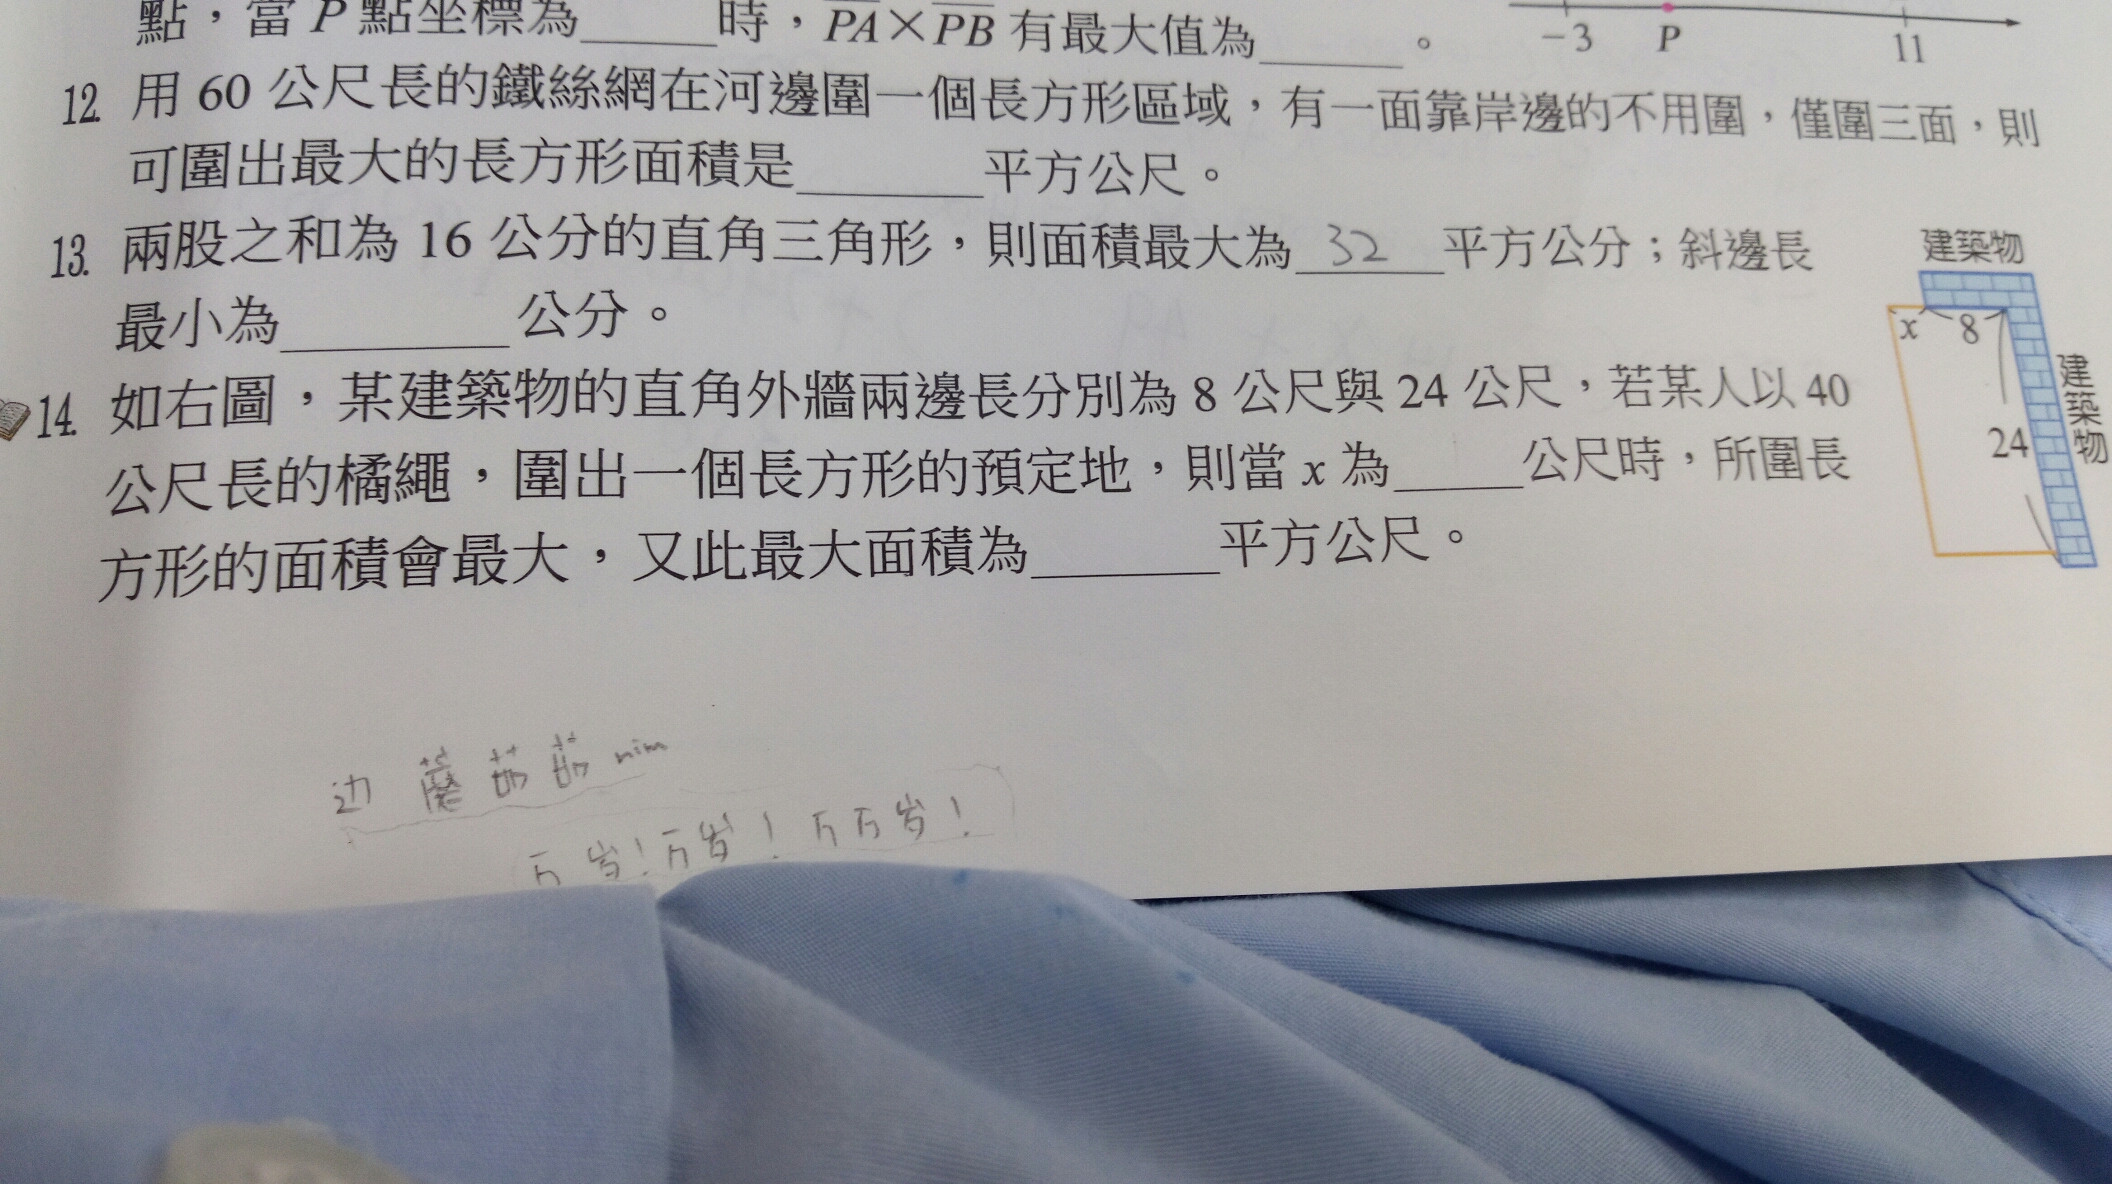 點，當 P 點坐標為_____時，PA×PB 有最大值為_____。
-3 P 11
12. 用 60 公尺長的鐵絲網在河邊圍一個長方形區域，有一面靠岸邊的不用圍，僅圍三面，則
可圍出最大的長方形面積是_____平方公尺。
13. 兩股之和為 16 公分的直角三角形，則面積最大為 32 平方公分；斜邊長
最小為_____公分。
建築物
x 8
24
建築物
14. 如右圖，某建築物的直角外牆兩邊長分別為 8 公尺與 24 公尺，若某人以 40
公尺長的橘繩，圍出一個長方形的預定地，則當 x 為_____公尺時，所圍長
方形的面積會最大，又此最大面積為_____平方公尺。
边
万岁！万岁！万万岁！